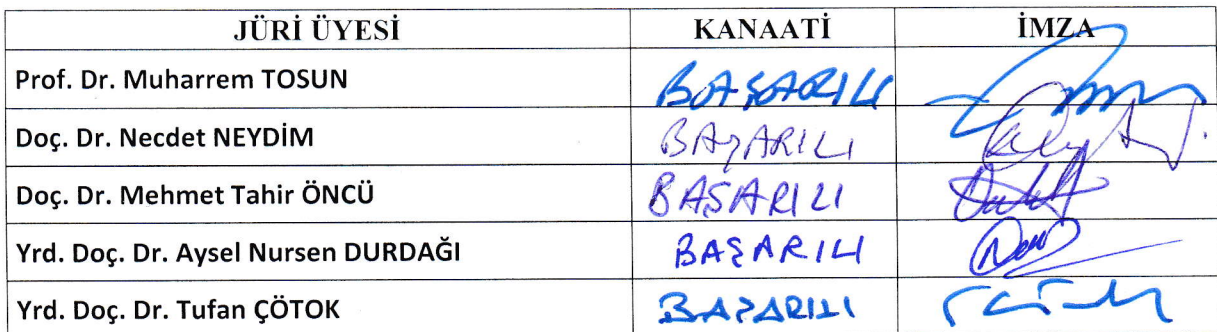 JÜRİ ÜYESİ KANAATİ İMZA
Prof. Dr. Muharrem TOSUN BAŞARILI
Doç. Dr. Necdet NEYDİM BAŞARILI
Doç. Dr. Mehmet Tahir ÖNCÜ BAŞARILI
Yrd. Doç. Dr. Aysel Nursen DURDAĞI BAŞARILI
Yrd. Doç. Dr. Tufan ÇÖTOK BAŞARILI